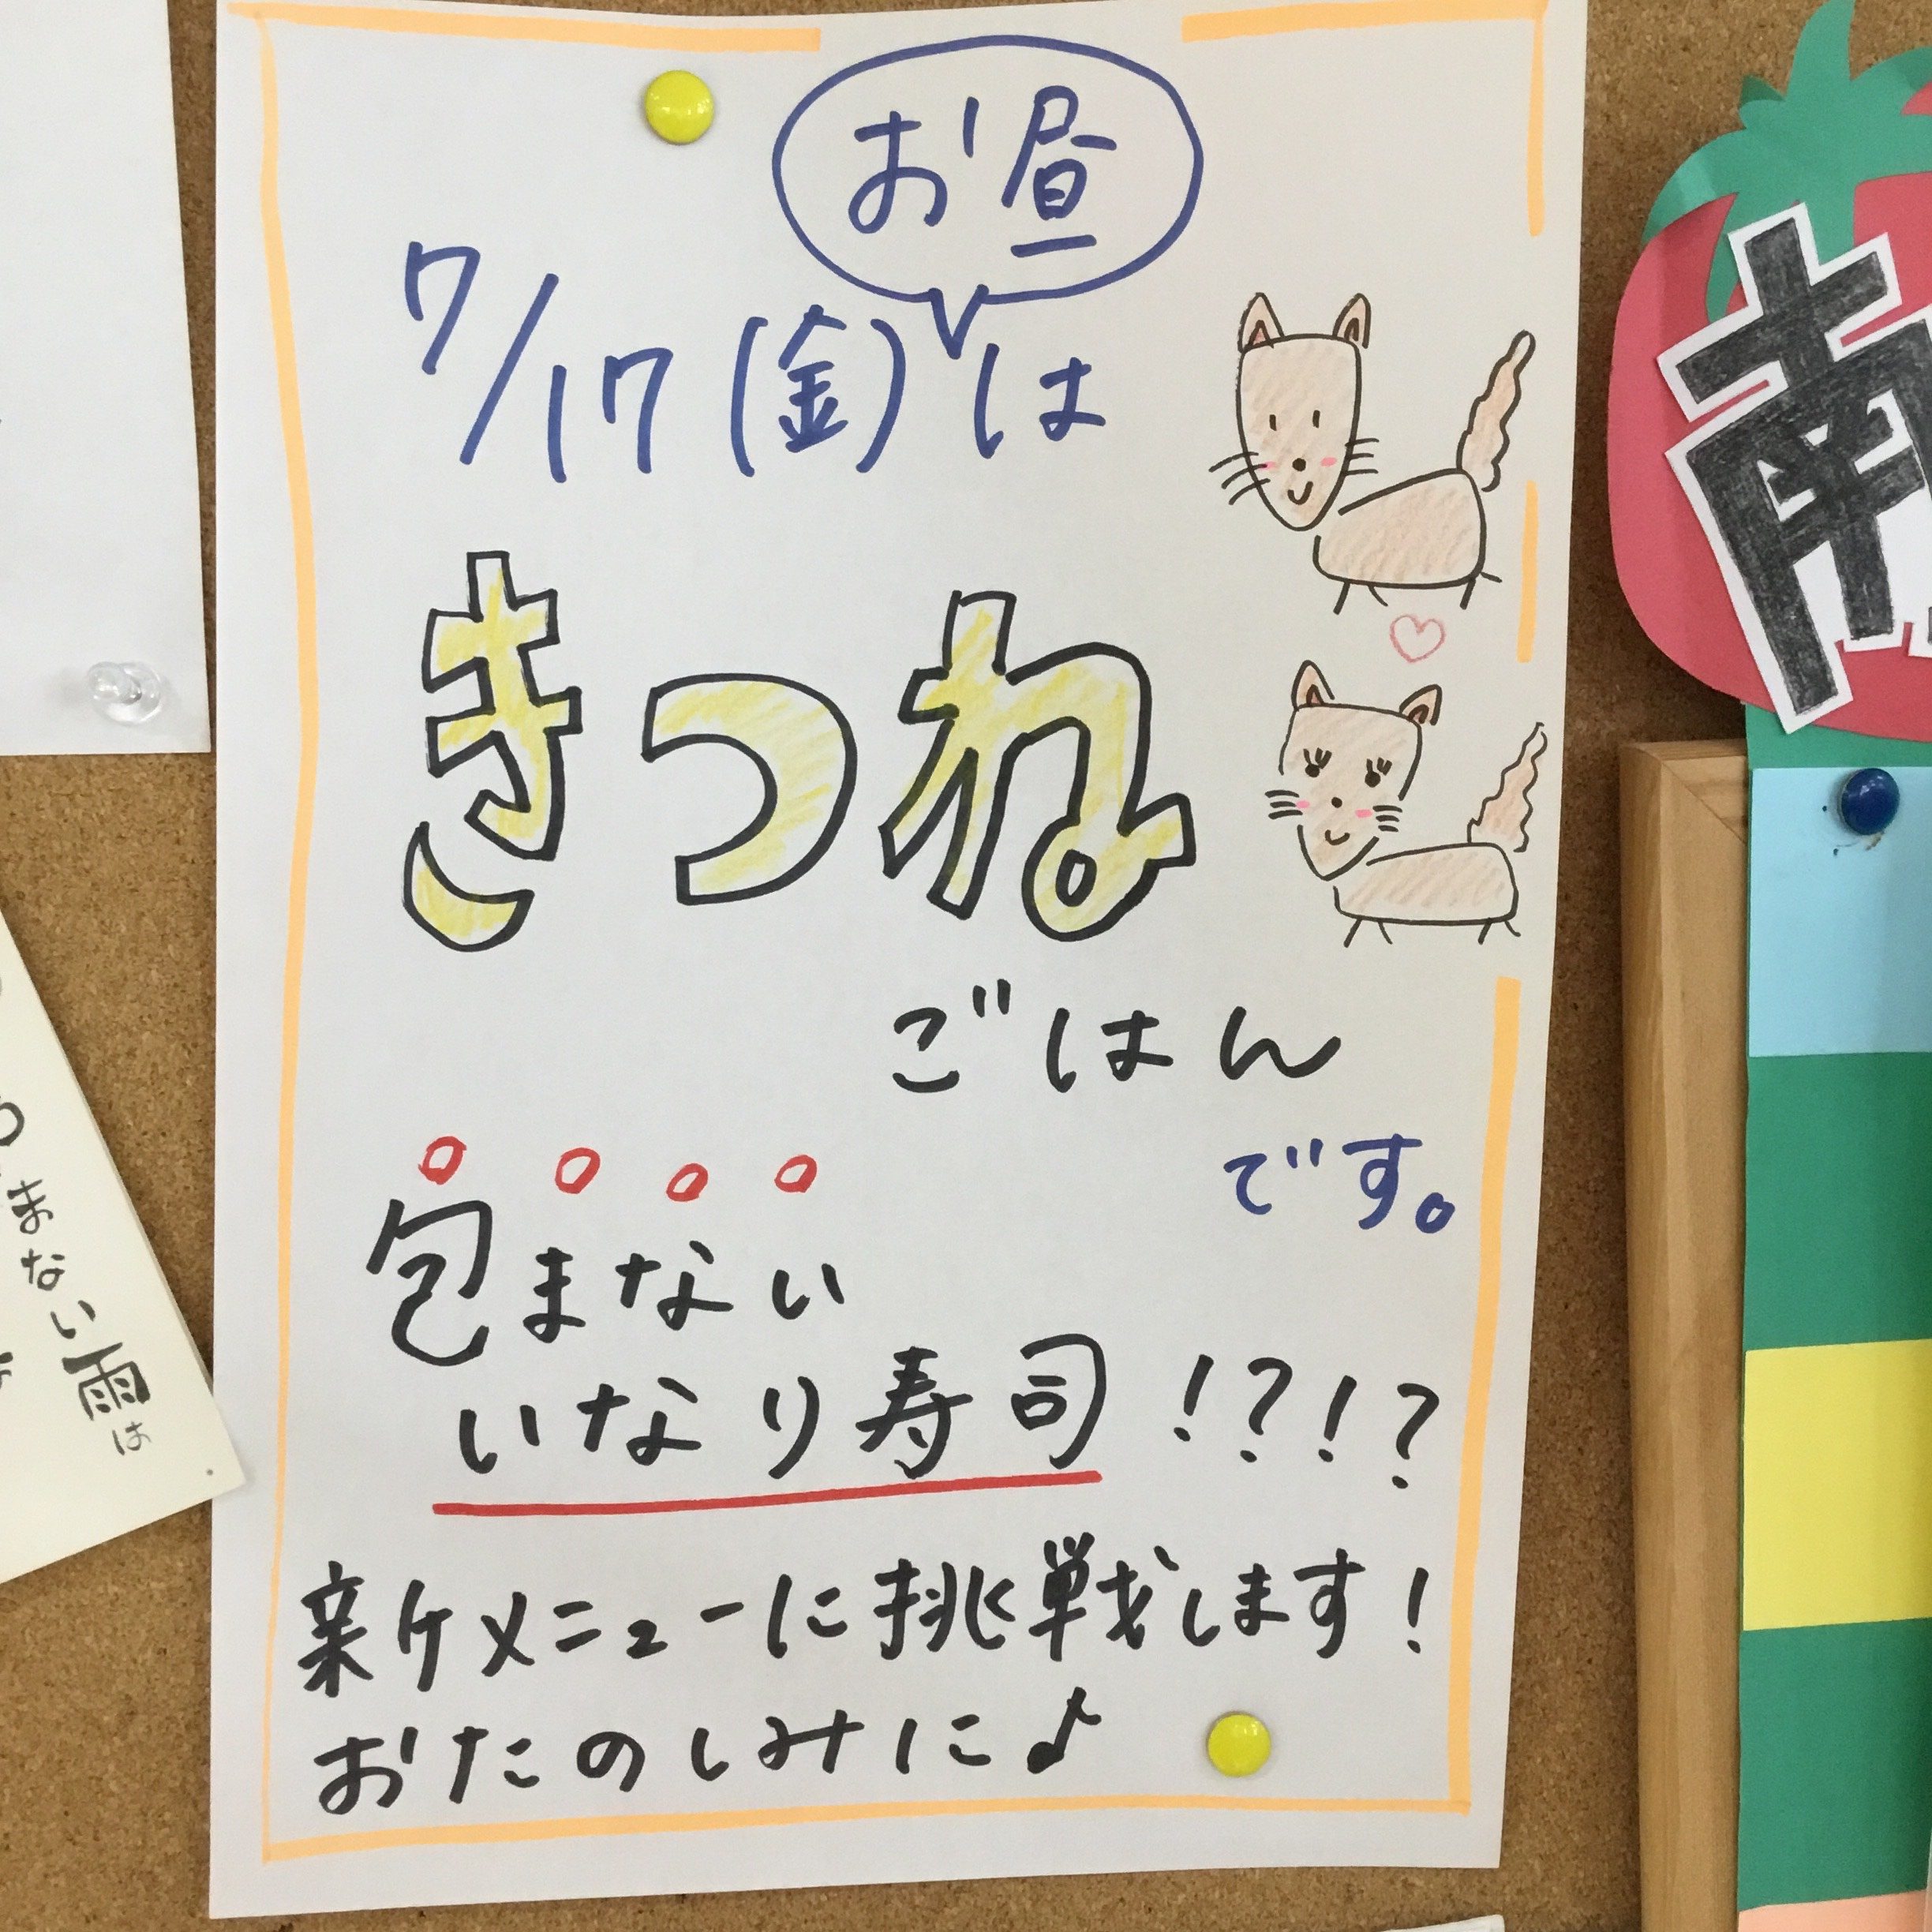 お昼
7/17(金)は
きつね
ごはん
です。
包まない
いなり寿司!?!?
新メニューに挑戦します!
おたのしみに♪
まない雨は
南